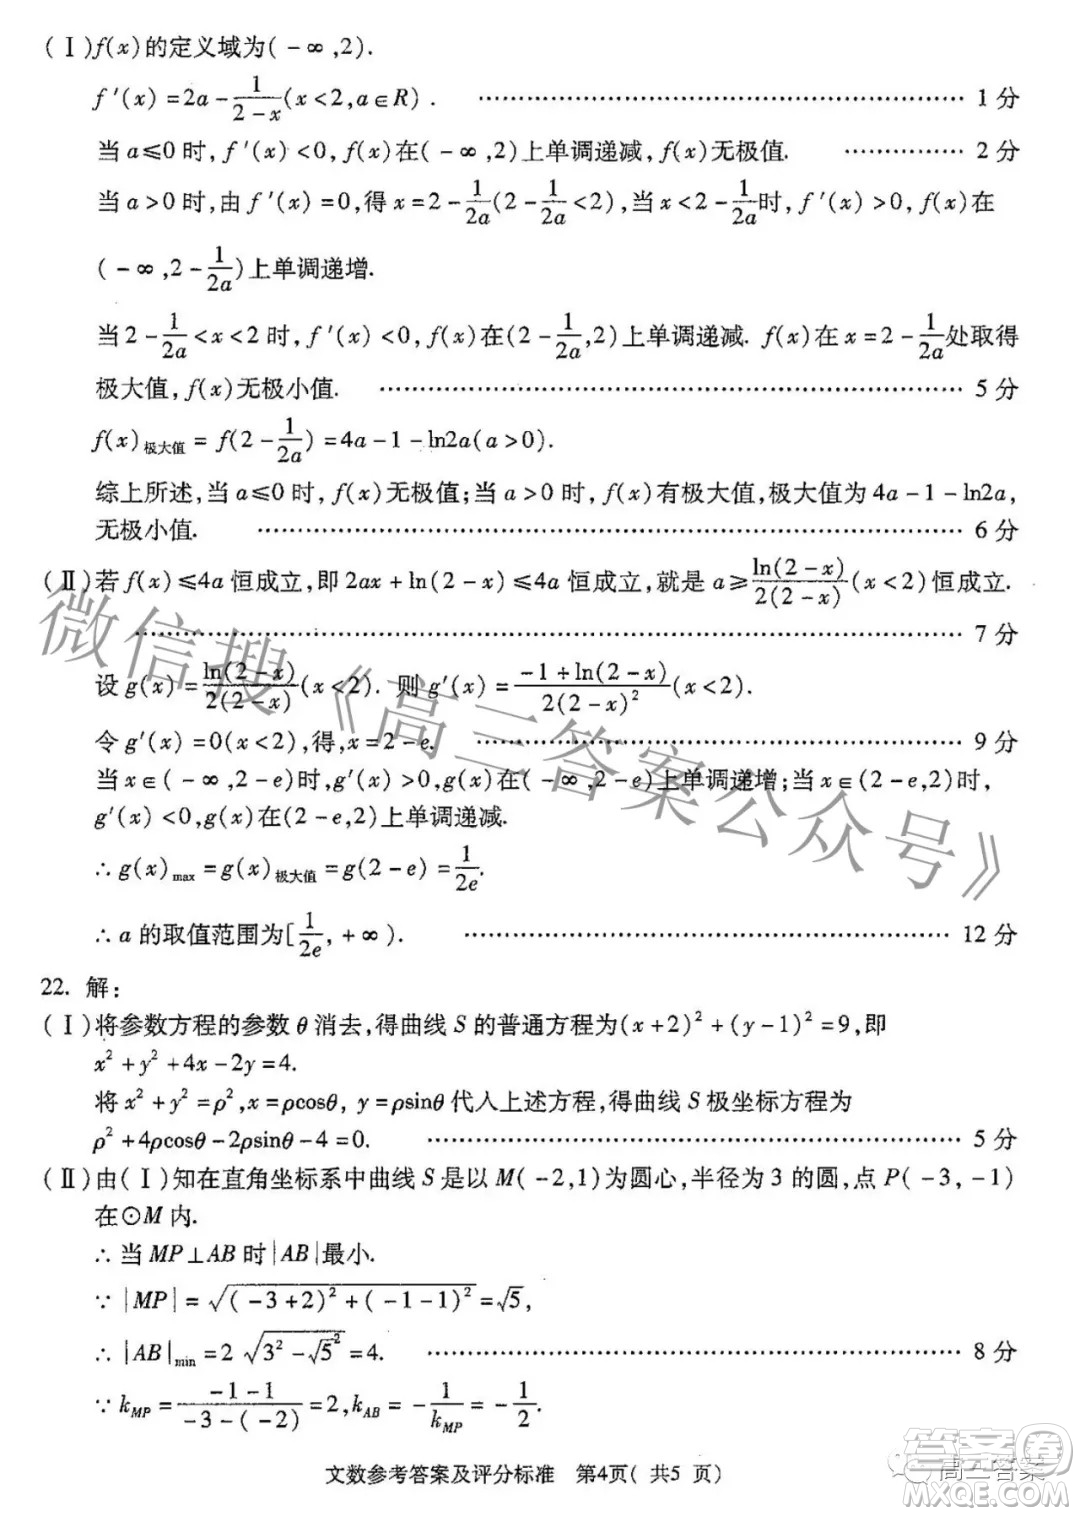 (Ⅰ)f(x)的定义域为(-∞,2).
f′(x)=2a-1/(2-x)(x<2,a∈R). ……………………………………………… 1分
当a≤0时,f′(x)<0,f(x)在(-∞,2)上单调递减,f(x)无极值. …………… 2分
当a>0时,由f′(x)=0,得x=2-1/2a(2-1/2a<2),当x<2-1/2a时,f′(x)>0,f(x)在
(-∞,2-1/2a)上单调递增.
当2-1/2a<x<2时,f′(x)<0,f(x)在(2-1/2a,2)上单调递减. f(x)在x=2-1/2a处取得
极大值,f(x)无极小值. ……………………………………………………… 5分
f(x)极大值=f(2-1/2a)=4a-1-ln2a(a>0).
综上所述,当a≤0时,f(x)无极值;当a>0时,f(x)有极大值,极大值为4a-1-ln2a,
无极小值. …………………………………………………………………… 6分
(Ⅱ)若f(x)≤4a恒成立,即2ax+ln(2-x)≤4a恒成立,就是a≥ln(2-x)/2(2-x)(x<2)恒成立.
……………………………………………………………………………… 7分
设g(x)=ln(2-x)/2(2-x)(x<2). 则g′(x)=(-1+ln(2-x))/2(2-x)²(x<2).
令g′(x)=0(x<2),得,x=2-e. ……………………………………………… 9分
当x∈(-∞,2-e)时,g′(x)>0,g(x)在(-∞,2-e)上单调递增;当x∈(2-e,2)时,
g′(x)<0,g(x)在(2-e,2)上单调递减.
∴g(x)max=g(x)极大值=g(2-e)=1/2e.
∴a的取值范围为[1/2e,+∞). ……………………………………………… 12分
22. 解:
(Ⅰ)将参数方程的参数θ消去,得曲线S的普通方程为(x+2)²+(y-1)²=9,即
x²+y²+4x-2y=4.
将x²+y²=ρ²,x=ρcosθ, y=ρsinθ代入上述方程,得曲线S极坐标方程为
ρ²+4ρcosθ-2ρsinθ-4=0. …………………………………………………… 5分
(Ⅱ)由(Ⅰ)知在直角坐标系中曲线S是以M(-2,1)为圆心,半径为3的圆,点P(-3,-1)
在⊙M内.
∴当MP⊥AB时|AB|最小.
∵|MP|=√((-3+2)²+(-1-1)²)=√5,
∴|AB|min=2√(3²-√5²)=4. …………………………………………………… 8分
∵kMP=(-1-1)/(-3-(-2))=2,kAB=-1/kMP=-1/2.
文数参考答案及评分标准 第4页( 共5 页)
微信搜《高三答案公众号》
高三答案
答案圈
MXQE.COM